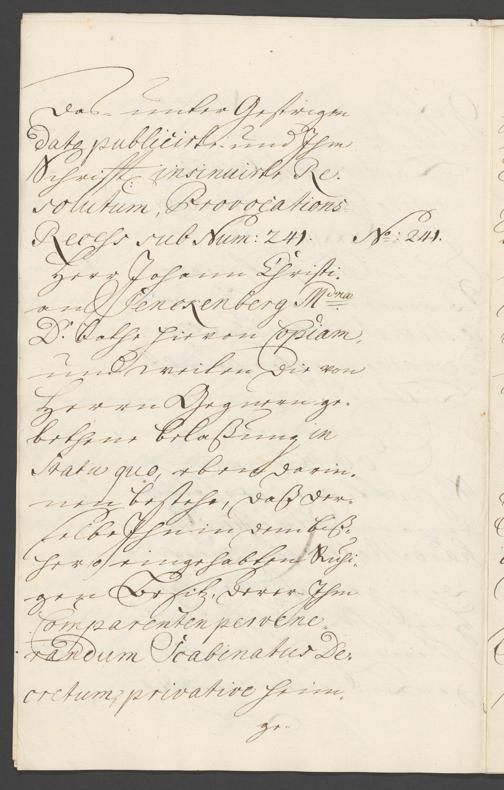 das unter Gestrigem
dato publicirte und Ihm
Schrifftl: insinuirte Re-
solutum, Provocations
Recess sub Num: 241. No: 241.
Herr Johann Christi-
an Senckenberg Mdinæ
Dr. bathe hiervon Copiam,
und weilen die von
Herrn Gegnern ge-
bethene belaßung in
Statu quo, eben darin-
nen bestehe, daß der-
selbe Ihn in dem biß-
hero eingehabten Ruhi-
gen Besitz, derer Ihm
Comparenten per vene-
randum Scabinatus De-
cretum, privative heim-
ge-